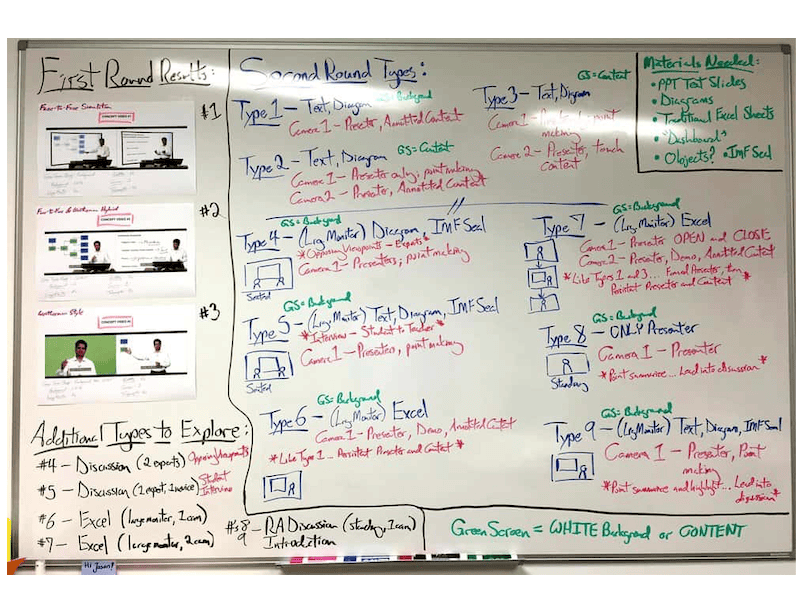 First Round Results:
Face-to-Face Simulation
CONCEPT VIDEO #1
#1
CONCEPT VIDEO #2
#2
CONCEPT VIDEO #3
#3
Additional Types to Explore:
#4 – Discussion (2 experts) Opposing Viewpoints
#5 – Discussion (1 expert, 1 novice) Student Interview
#6 – Excel (large monitor, 1 cam)
#7 – Excel (large monitor, 2 cam)
#s 8
9 – RA Discussion (standing, 1 cam)
Introduction
Second Round Types:
GS = Background
Type 1 – Text, Diagram
Camera 1 – Presenter, Annotated Content
GS = Content
Type 2 – Text, Diagram
Camera 1 – Presenter only; point making
Camera 2 – Presenter, Annotated Content
GS = Content
Type 3 – Text, Diagram
Camera 1 – Presenter, point
making
Camera 2 – Presenter, touch
content
Materials Needed:
• PPT Text Slides
• Diagrams
• Traditional Excel Sheets
• "Dashboard"
• Objects? • IMF Seal
GS = Background
Type 4 – (Lrg Monitor) Diagram, IMF Seal
*Opposing Viewpoints – Experts*
Camera 1 – Presenters; point making
Seated
GS = Background
Type 5 – (Lrg Monitor) Text, Diagram, IMF Seal
*Interview – Student to Teacher*
Camera 1 – Presenters, point making
Seated
GS = Background
Type 6 – (Lrg Monitor) Excel
Camera 1 – Presenter, Demo, Annotated Content
*Like Type 1... Persistent Presenter and Content*
GS = Background
Type 7 – (Lrg Monitor) Excel
Camera 1 – Presenter OPEN and CLOSE
Camera 2 – Presenter, Demo, Annotated Content
*Like Types 1 and 3... Framed Presenter, then
Persistent Presenter and Content*
GS = Background
Type 8 – ONLY Presenter
Camera 1 – Presenter
*Point summarize... Lead into discussion*
Standing
GS = Background
Type 9 – (Lrg Monitor) Text, Diagram, IMF Seal
Camera 1 – Presenter, Point
making
*Point summarize and highlight... Lead into
discussion*
Green Screen = WHITE Background or CONTENT
Hi Jason!